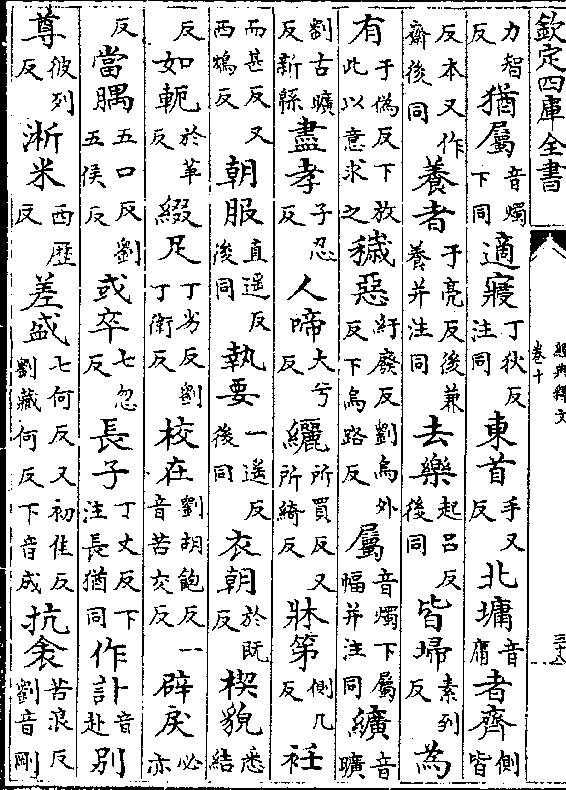 欽定四庫全書
經典釋文
卷十
三十八
力智反猶屬音燭下同適寢丁狄反注同東首手又反北墉音庸者齊側皆
反本又作齋後同養者于亮反後兼養并注同去樂起呂反後同皆埽素到反為
有于偽反下放此以意求之穢惡紆廢反劉烏外反下烏路反屬音燭下屬幅并注同纊音曠
劉古曠反新緜盡孝子忍反人啼大兮反纚所買反又所綺反牀笫側几反衽
而甚反又西鴆反朝服直遥反後同執要一遥反後同衣朝於既反楔貌悉結
反如軛於革反綴足丁劣反劉丁衛反校在劉胡飽反一音苦交反辟戾必亦
反當腢五口反劉五侯反或卒七忽反長子丁丈反下注長猶同作訃音赴別
尊彼列反淅米西歷反差盛七何反又初佳反劉藏何反下音成抗衾苦浪反劉音剛